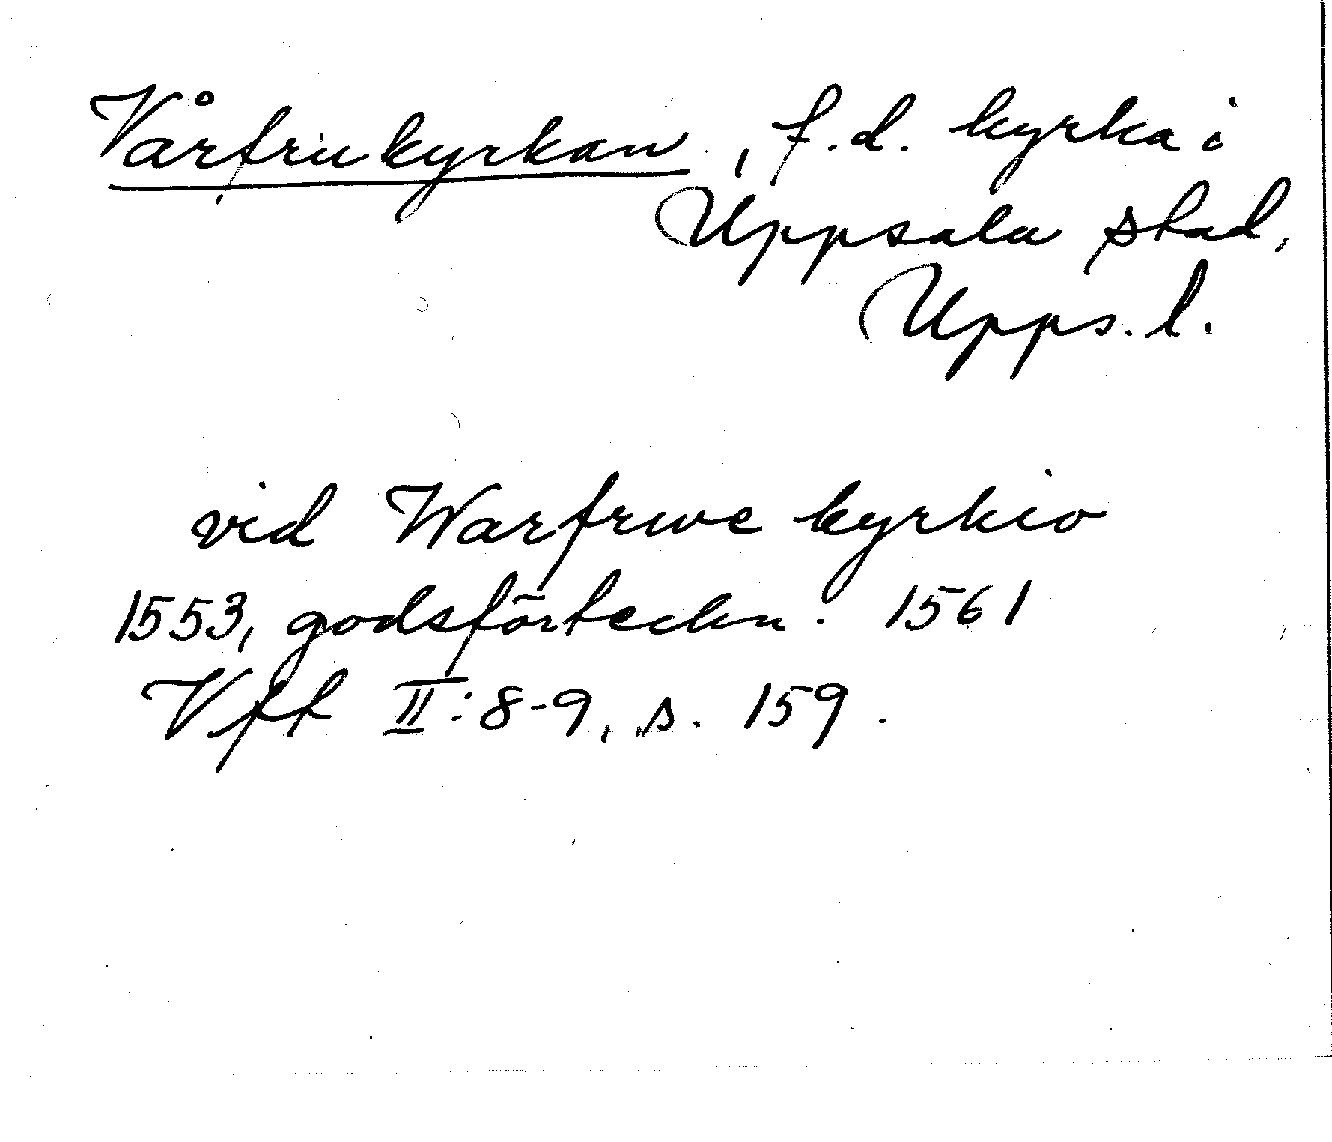 Vårfrukyrkan, f.d. kyrka i
Uppsala stad,
Upps. l.
vid Warfrwe kyrkio
1553, godsförteckn. 1561
Vft II:8-9, s. 159.